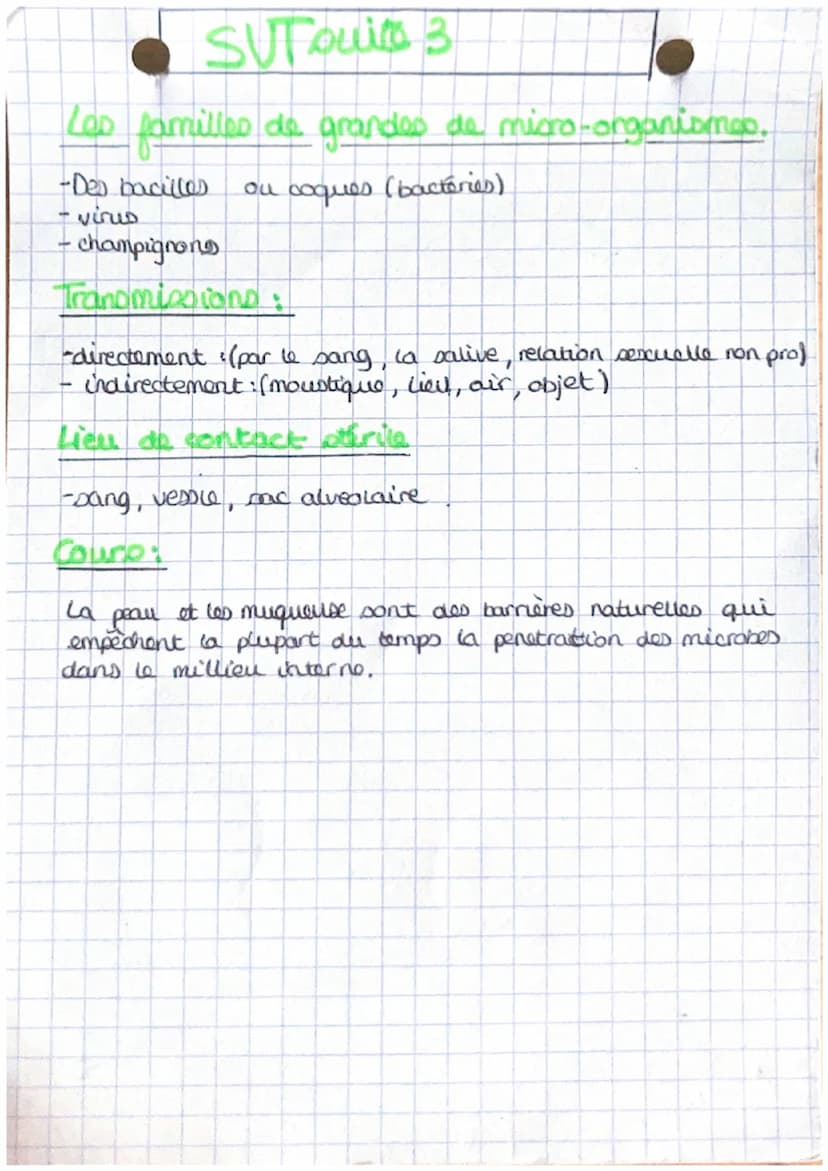 SVT ouita 3
Les familles de grandes de micro-organismes.
-Des bacilles ou coques (bactéries)
- virus
- champignons
Transmissions :
-directement :(par le sang, la salive, relation sexuelle non pro)
- indirectement :(moustique, lieu, air, objet)
Lieu de contact stérile
-sang, vessie, sac alveolaire.
Cours:
La peau et les muqueuse sont des barrières naturelles qui
empêchent la plupart du temps la penetraition des microbes
dans le millieu interne.